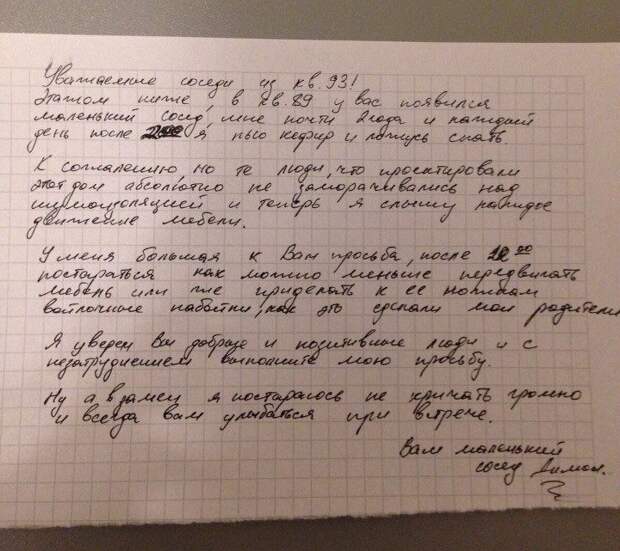 Уважаемые соседи из кв. 93!
Этажом ниже, в кв. 89 у вас появился
маленький сосед, мне почти 2 года и каждый
день после я, пью кефир и ложусь спать.
К сожалению, но те люди, что проектировали
этот дом абсолютно не заморачивались над
шумоизоляцией и теперь я слышу каждое
движение мебели.
У меня большая к Вам просьба, после
постараться как можно меньше передвигать
мебель или же приделать к ее ножкам
войлочные набойки, как это сделали мои родители
Я уверен Вы добрые и позитивные люди и с
незатруднением выполните мою просьбу.
Ну а взамен я постараюсь не кричать громко
и всегда вам улыбаться при встрече.
Ваш маленький
сосед Димон.